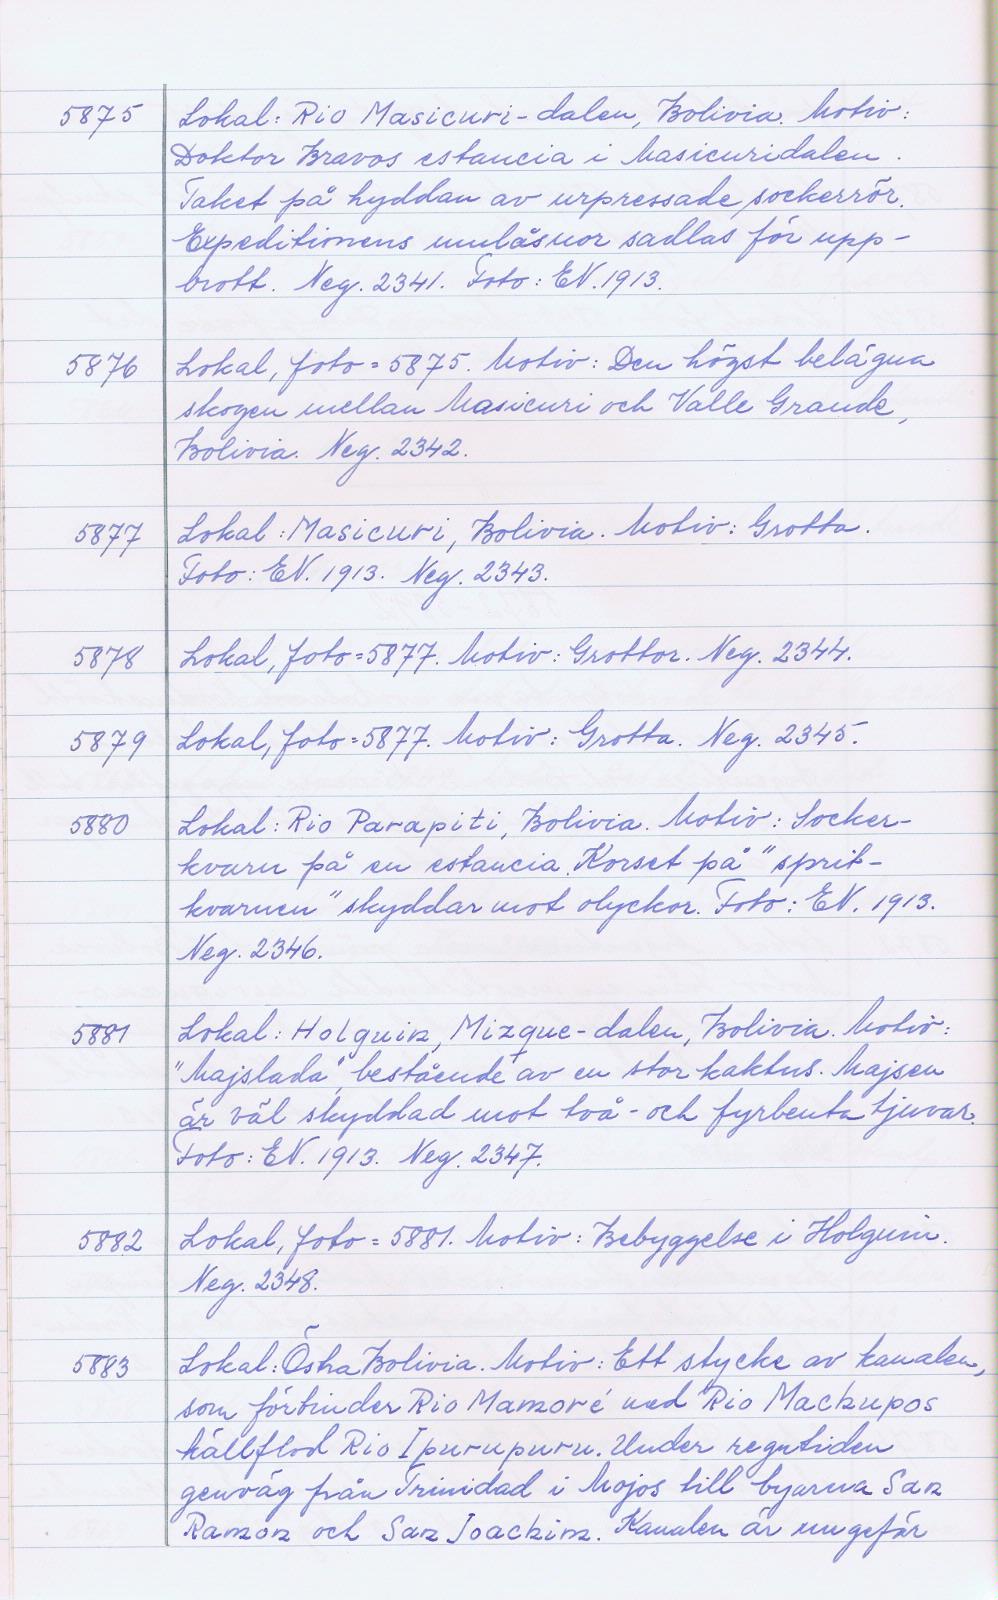 5875 Lokal: Rio Masicuri-dalen, Bolivia. Motiv:
Doktor Bravos estancia i Masicuridalen.
Taket på hyddan av urpressade sockerrör.
Expeditionens mulåsnor sadlas för upp-
brott. Neg. 2341. Foto: EN. 1913.
5876 Lokal, foto = 5875. Motiv: Den högst belägna
skogen mellan Masicuri och Valle Grande,
Bolivia. Neg. 2342.
5877 Lokal: Masicuri, Bolivia. Motiv: Grotta.
Foto: EN. 1913. Neg. 2343.
5878 Lokal, foto = 5877. Motiv: Grottor. Neg. 2344.
5879 Lokal, foto = 5877. Motiv: Grotta. Neg. 2345.
5880 Lokal: Rio Parapiti, Bolivia. Motiv: Socker-
kvarn på en estancia. Korset på "sprit-
kvarnen" skyddar mot olyckor. Foto: EN. 1913.
Neg. 2346.
5881 Lokal: Holguin, Mizque-dalen, Bolivia. Motiv:
"Majslada", bestående av en stor kaktus. Majsen
är väl skyddad mot två- och fyrbenta tjuvar.
Foto: EN. 1913. Neg. 2347.
5882 Lokal, foto = 5881. Motiv: Bebyggelse i Holguin.
Neg. 2348.
5883 Lokal: Östra Bolivia. Motiv: Ett stycke av kanalen,
som förbinder Rio Mamoré med Rio Machupos
källflod Rio Ipurupuru. Under regntiden
genväg från Trinidad i Mojos till byarna San
Ramon och San Joachim. Kanalen är ungefär